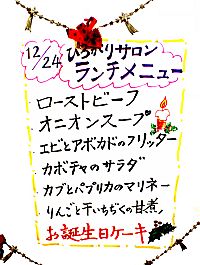 12/24 ひろがりサロン
ランチメニュー
ローストビーフ
オニオンスープ
エビとアボカドのフリッター
カボチャのサラダ
カブとパプリカのマリネー
りんごと干いちぢくの甘煮
お誕生日ケーキ